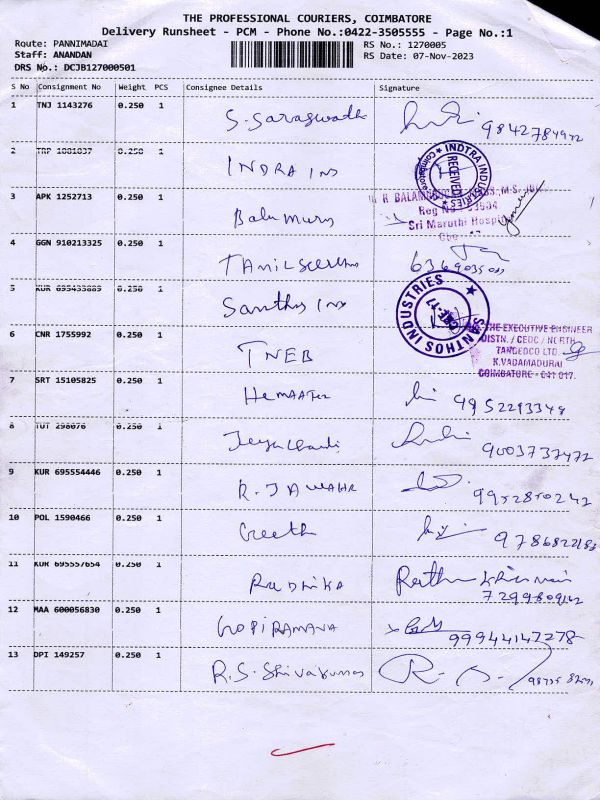 THE PROFESSIONAL COURIERS, COIMBATORE
Delivery Runsheet - PCM - Phone No.:0422-3505555 - Page No.:1
Route: PANNIMADAI RS No.: 1270005
Staff: ANANDAN RS Date: 07-Nov-2023
DRS No.: DCJB127000501
S No Consignment No Weight PCS Consignee Details Signature
1 TNJ 1143276 0.250 1 S. Saraswadh 9842784972
2 TRP 1081037 0.250 1 INDRA INS
INDTRA INDUSTRIES RECEIVED Coimbatore
3 APK 1252713 0.250 1 Balu Muru
Reg No 53504
Sri Maruthi Hospital
4 GGN 910213325 0.250 1
5 KUR 695433885 0.250 1 Santhos Ins
SANTHOS INDUSTRIES CMT-17
6 CNR 1755992 0.250 1 TNEB
THE EXECUTIVE ENGINEER
DISTN. / CEDC / NORTH
TANGEDCO LTD.
K.VADAMADURAI
COIMBATORE - 641 017.
7 SRT 15105825 0.250 1 9952293348
8 TUT 298076 0.250 1 9003737472
9 KUR 695554446 0.250 1 R. JAWAHR 9952850242
10 POL 1590466 0.250 1 Geeth
11 KUR 695557654 0.250 1 RADHIKA
12 MAA 600056830 0.250 1 GOPIRAMANA 99944147278
13 DPI 149257 0.250 1 R.S. Shivakumar